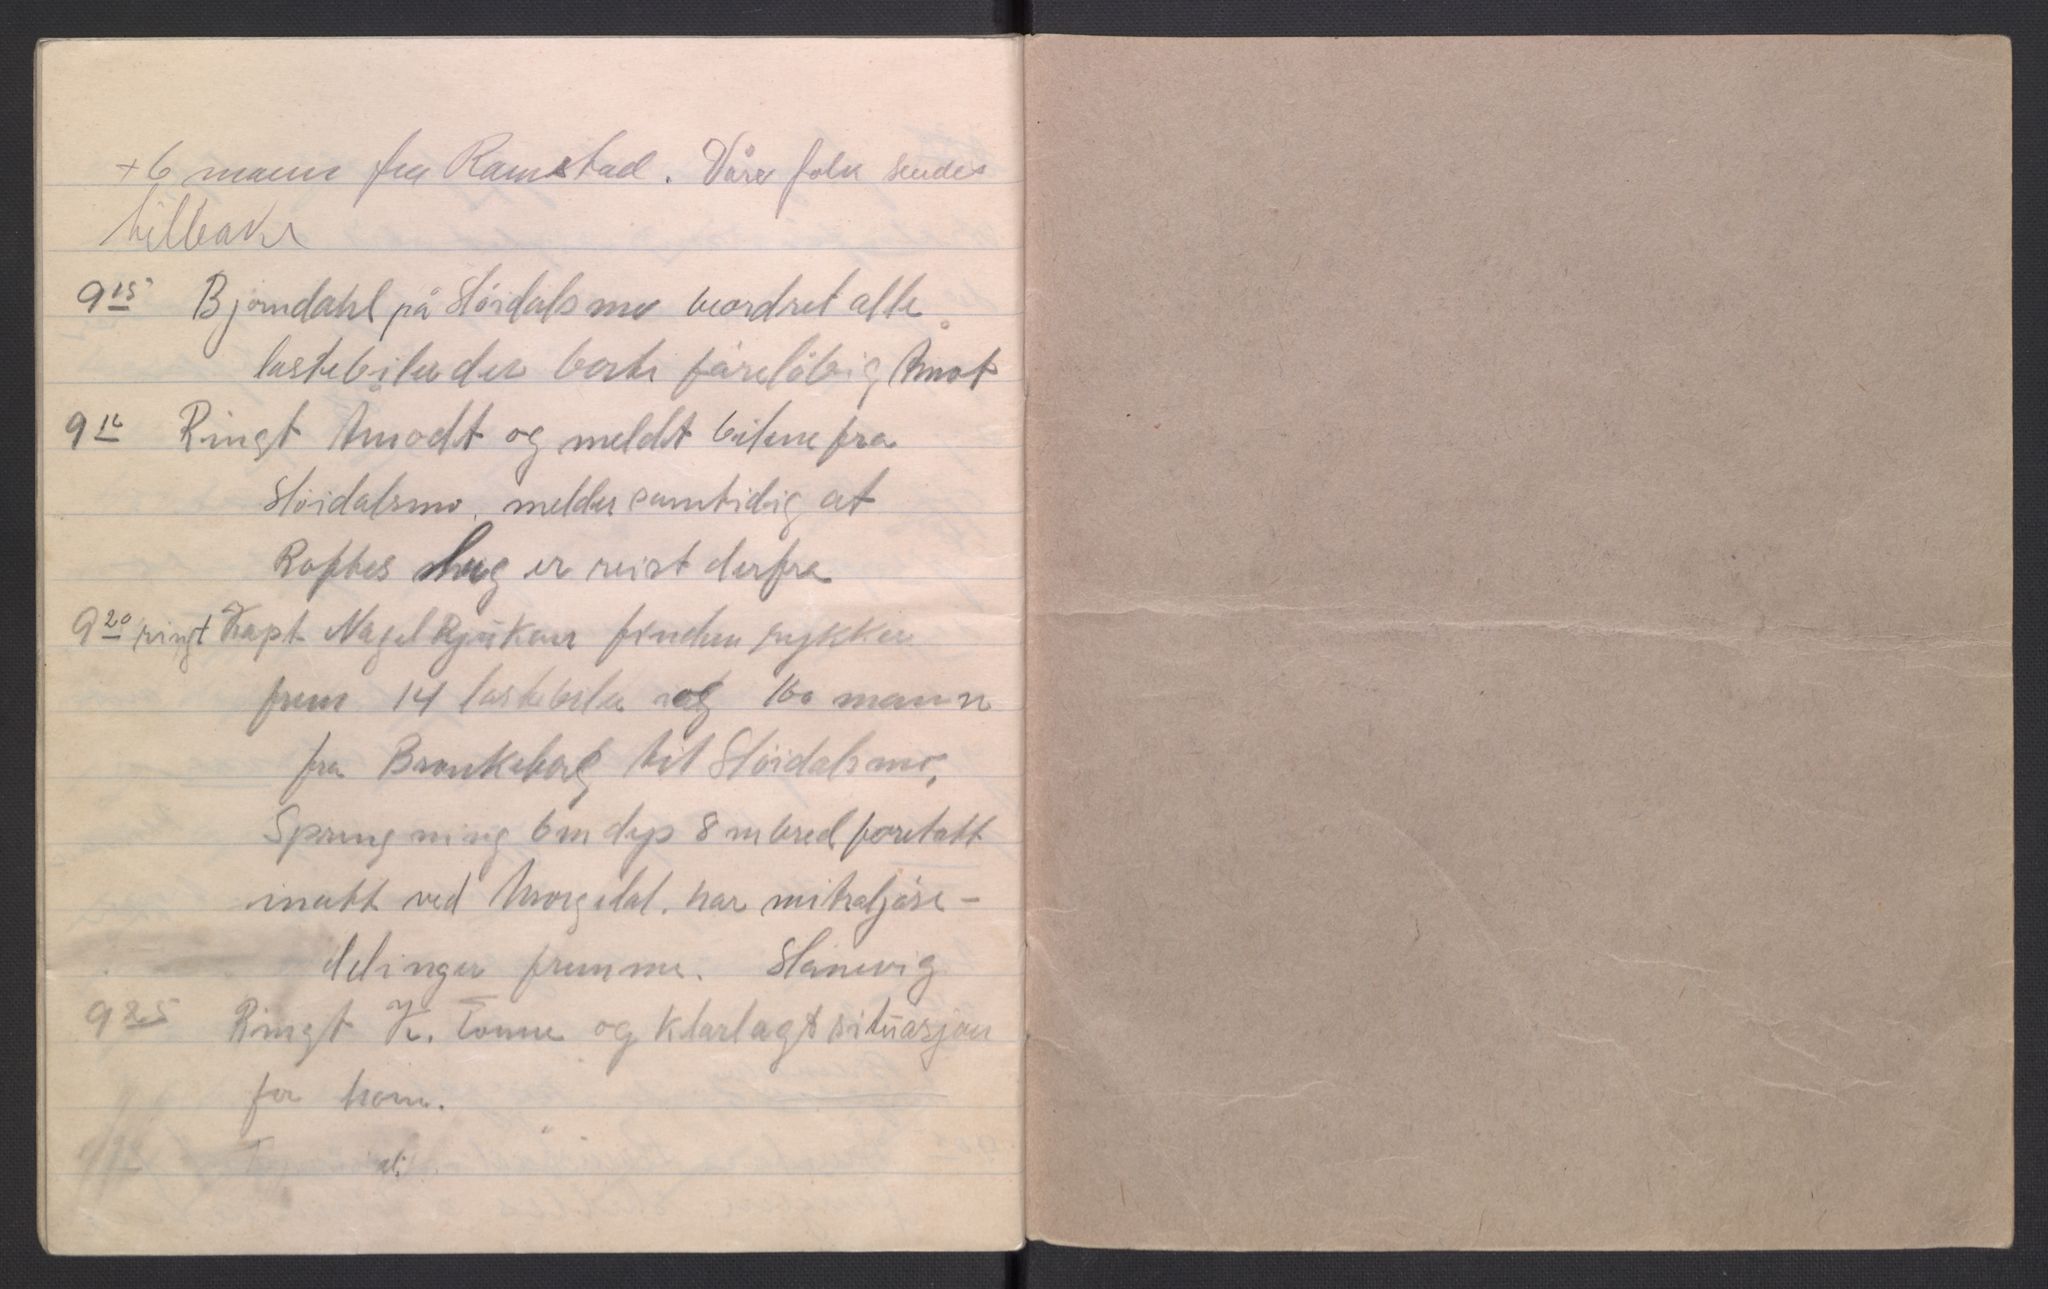 +6 mann fra Ramstad. Våre folk sendes
tilbake
9 15 Bjørndahl på Høidalsmo beordret alle
lastebiler der borte foreløbig Åmot
9 16 Ringt Åmodt og meldt bilene fra
Høidalsmo. melder samtidig at
Roftes lag er reist derfra
9 20 ringt Kapt Nagel Rjukan fienden rykker
frem 14 lastebiler og 160 mann
fra Brunkeberg til Høidalsmo,
Sprengning 6 m dyp 8 m bred foretatt
inatt ved Morgedal. har mitraljøse-
delinger fremme.
9 25 Ringt K. Tonne og klarlagt situasjon
for ham.